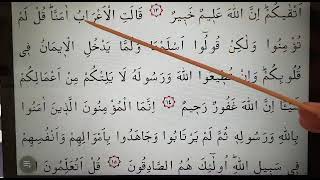 اَتْقٰيكُمْ اِنَّ اللّٰهَ عَل۪يمٌ خَب۪يرٌ ﴿١٣﴾ قَالَتِ الْاَعْرَابُ اٰمَنَّا قُلْ لَمْ
تُؤْمِنُوا وَلٰكِنْ قُولُٓوا اَسْلَمْنَا وَلَمَّا يَدْخُلِ الْا۪يمَانُ ف۪ي
قُلُوبِكُمْ وَاِنْ تُط۪يعُوا اللّٰهَ وَرَسُولَهُ لَا يَلِتْكُمْ مِنْ اَعْمَالِكُمْ
شَيْـًٔا اِنَّ اللّٰهَ غَفُورٌ رَح۪يمٌ ﴿١٤﴾ اِنَّمَا الْمُؤْمِنُونَ الَّذ۪ينَ اٰمَنُوا
بِاللّٰهِ وَرَسُولِه۪ ثُمَّ لَمْ يَرْتَابُوا وَجَاهَدُوا بِاَمْوَالِهِمْ وَاَنْفُسِهِمْ
ف۪ي سَب۪يلِ اللّٰهِ اُو۬لٰٓئِكَ هُمُ الصَّادِقُونَ ﴿١٥﴾ قُلْ اَتُعَلِّمُونَ